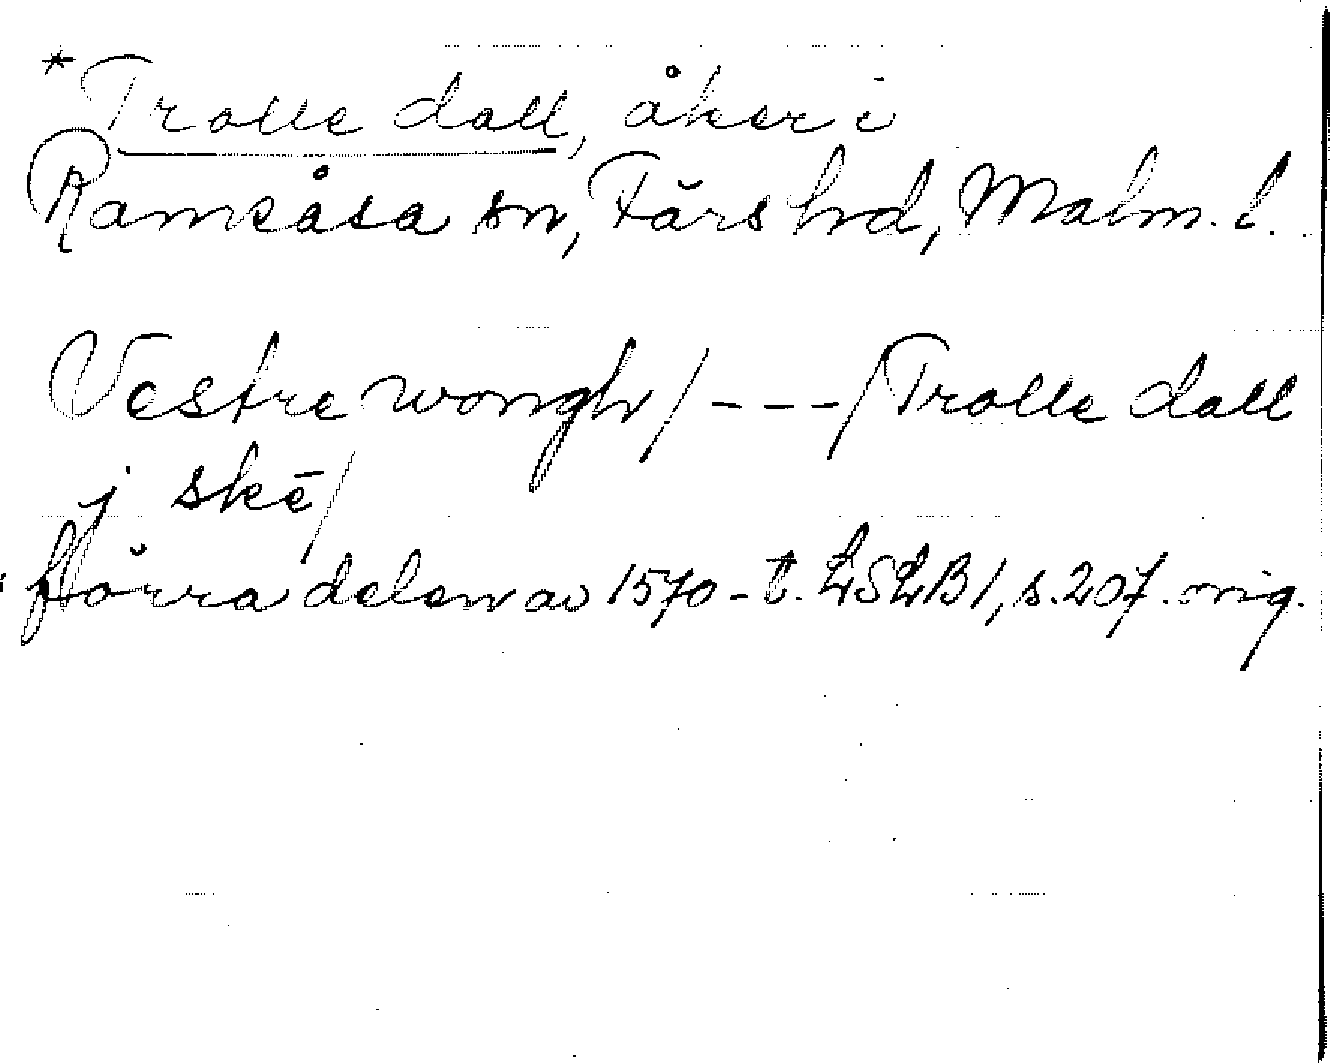 *Trolle dall, åker i
Ramsåsa sn, Färs hd, Malm. l.
Vestre wongh/---/Trolle dall
j skē/
förra delen av 1570-t. LSLB1, s.207. orig.